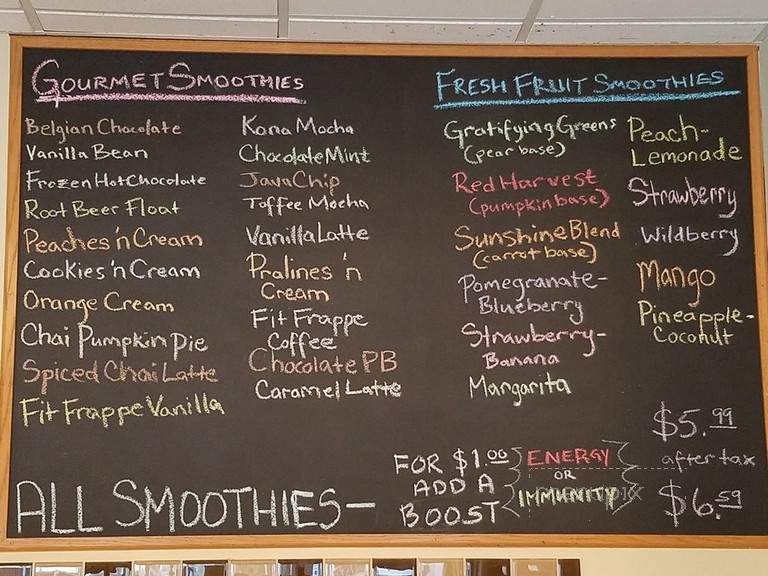 GOURMET SMOOTHIES
Belgian Chocolate
Vanilla Bean
Frozen Hot Chocolate
Root Beer Float
Peaches 'n Cream
Cookies 'n Cream
Orange Cream
Chai Pumpkin Pie
Spiced Chai Latte
Fit Frappe Vanilla
Kona Mocha
Chocolate Mint
Java Chip
Toffee Mocha
Vanilla Latte
Pralines 'n
Cream
Fit Frappe
Coffee
Chocolate PB
Caramel Latte
FRESH FRUIT SMOOTHIES
Gratifying Greens
(pear base)
Red Harvest
(pumpkin base)
Sunshine Blend
(carrot base)
Pomegranate-
Blueberry
Strawberry-
Banana
Margarita
Peach-
Lemonade
Strawberry
Wildberry
Mango
Pineapple-
Coconut
ALL SMOOTHIES-
$5.99
after tax
$6.59
FOR $1.00
ADD A
BOOST
ENERGY
OR
IMMUNITY